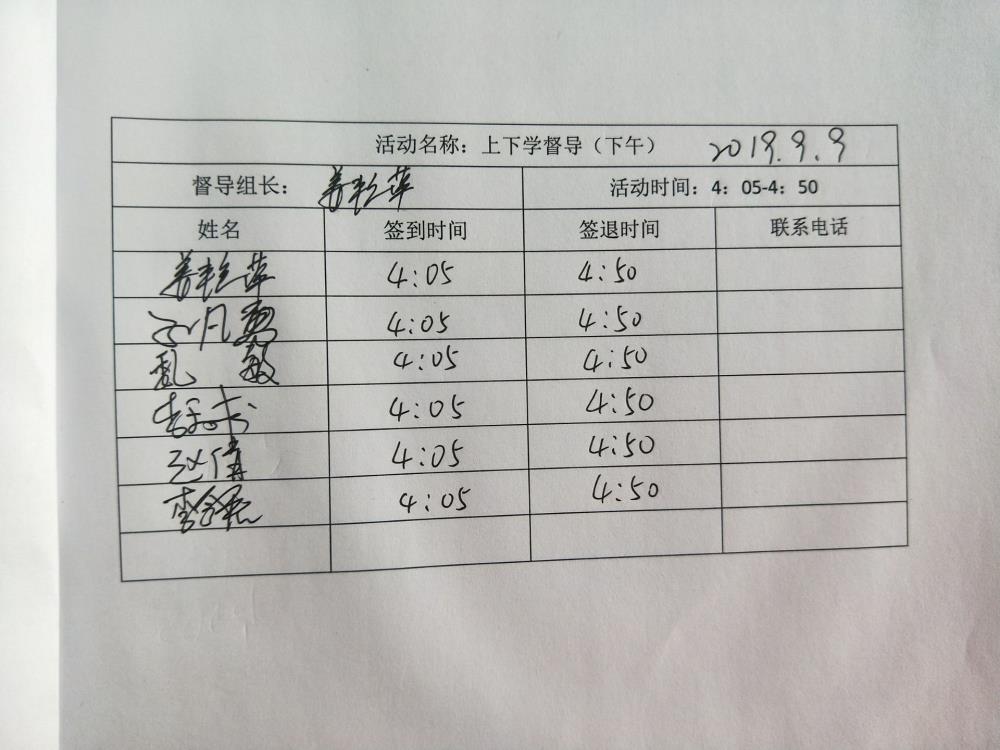 活动名称：上下学督导（下午） 2019.9.9
督导组长： 姜艳萍 活动时间：4：05-4：50
姓名 签到时间 签退时间 联系电话
姜艳萍 4:05 4:50
4:05 4:50
敏 4:05 4:50
4:05 4:50
赵倩 4:05 4:50
李 4:05 4:50